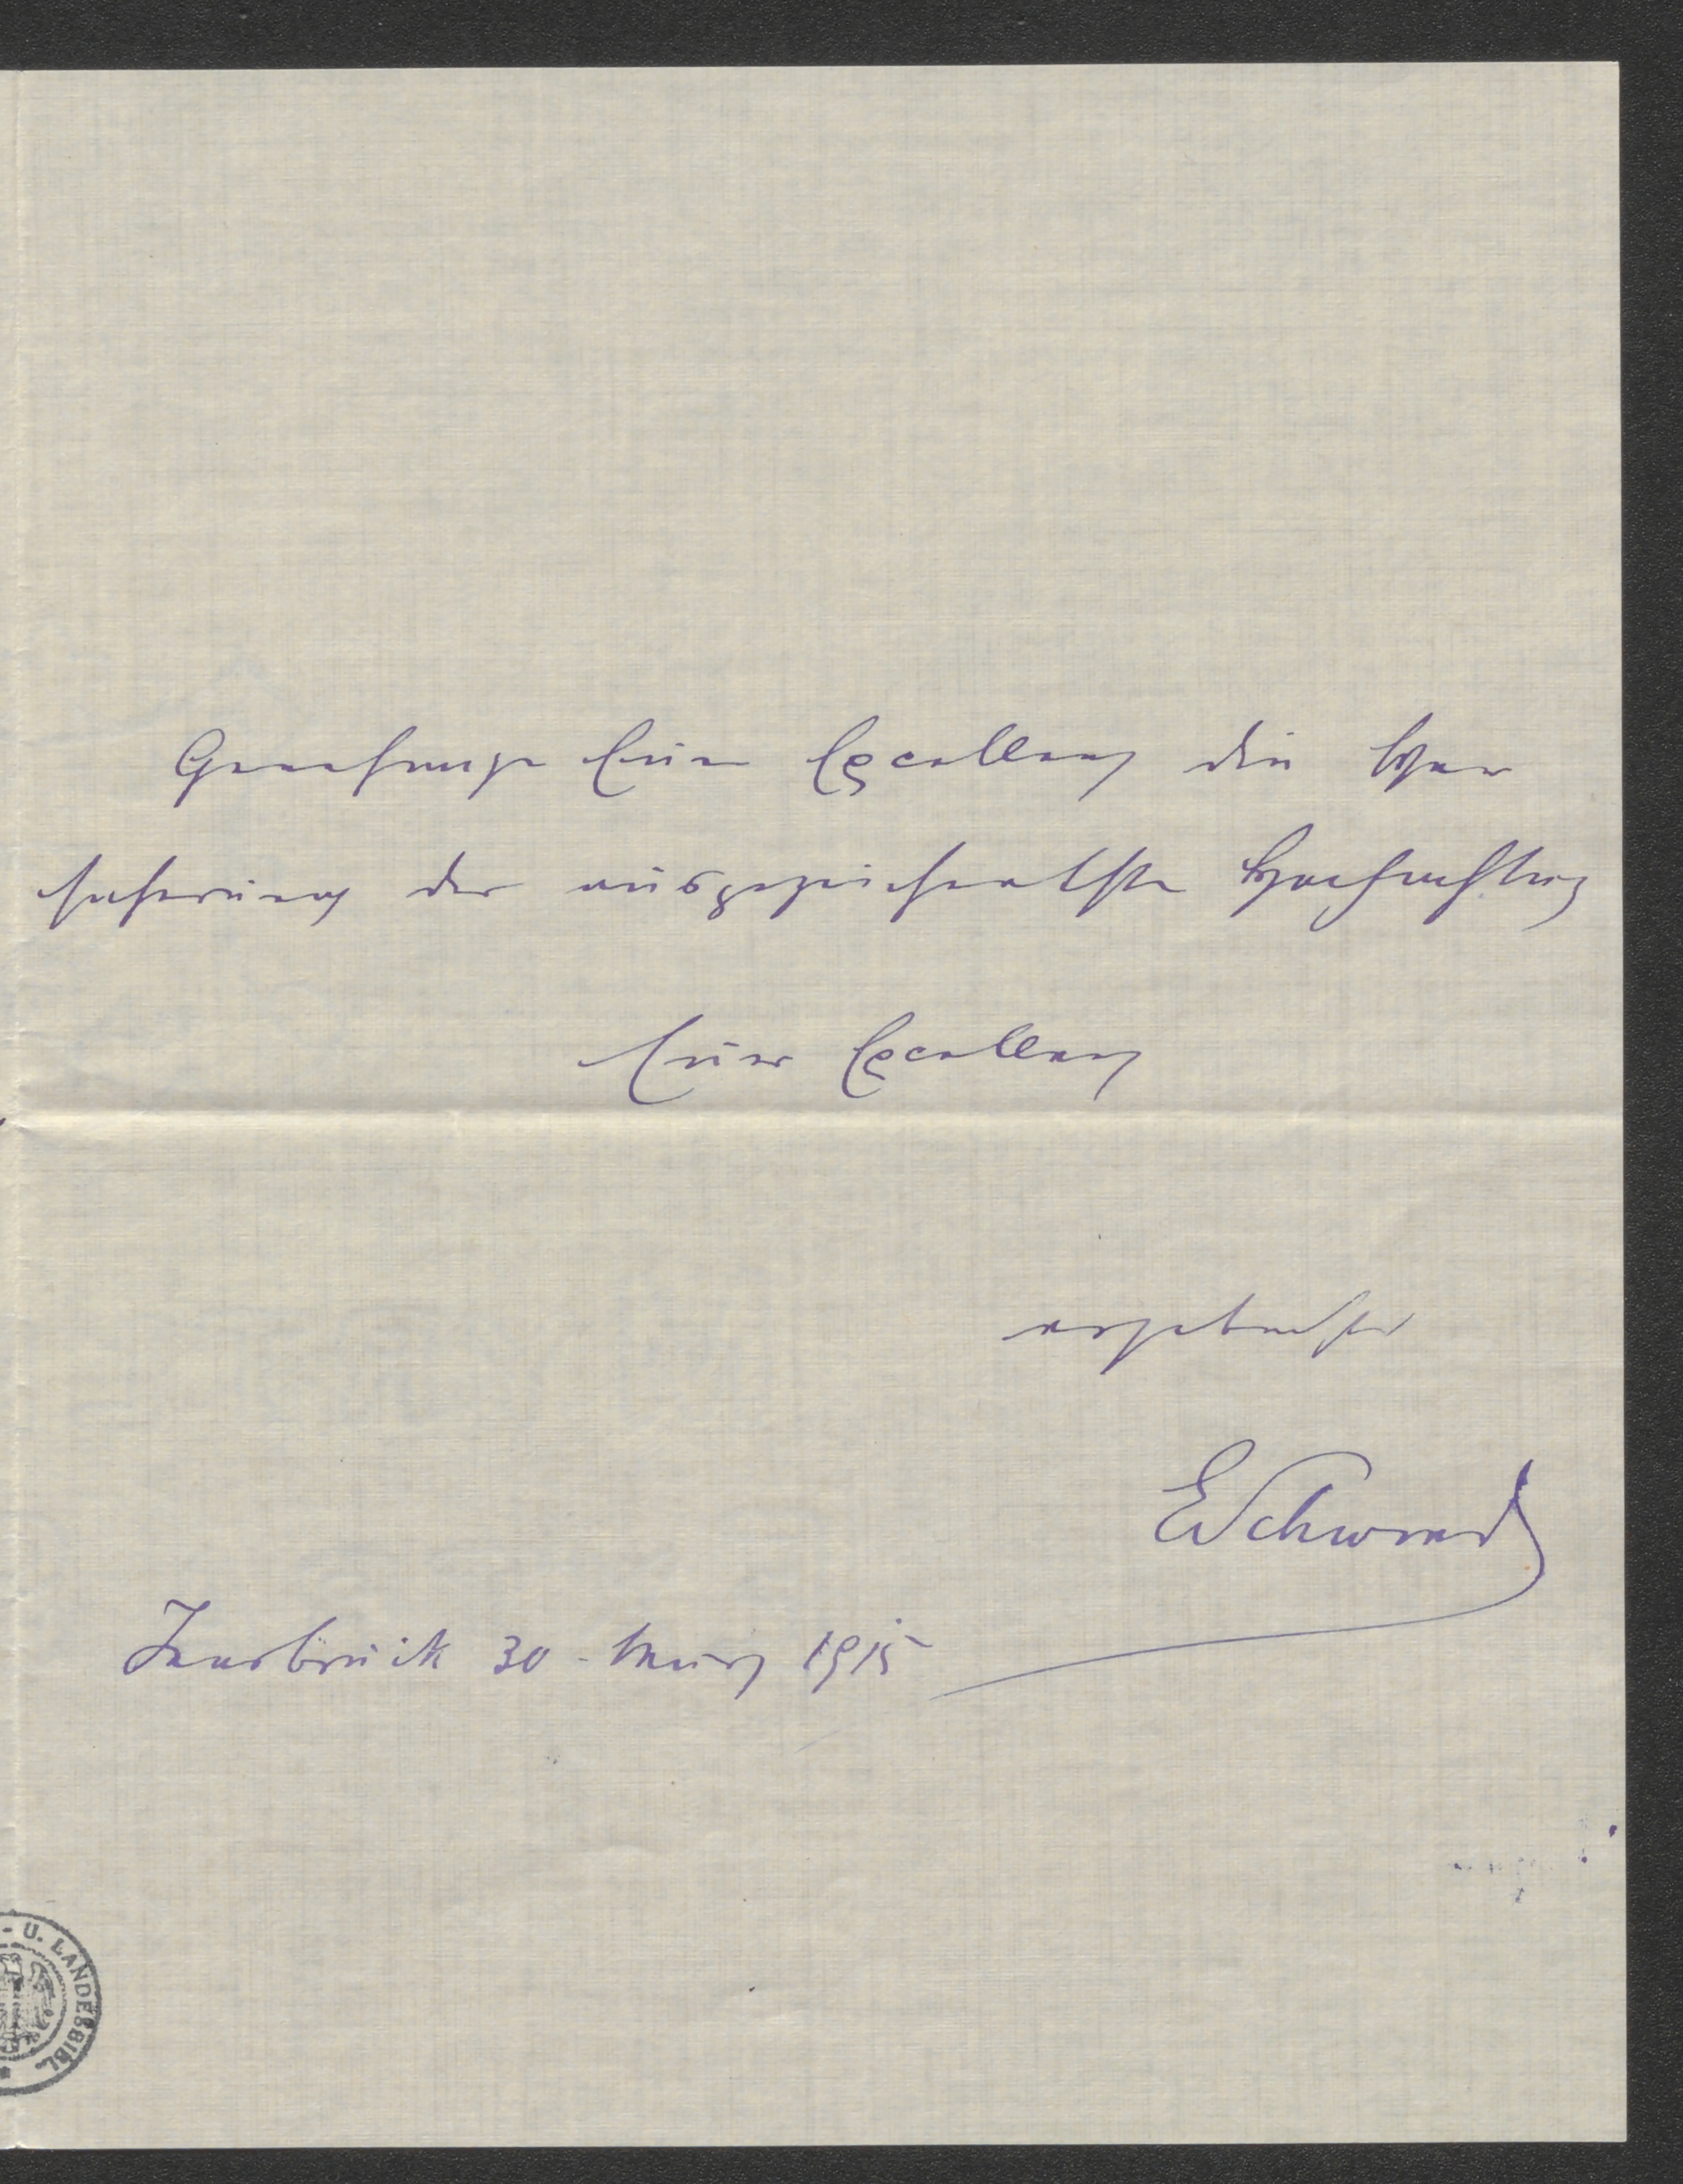 Genehmige Euer Excellenz die Ver
sicherung der ausgezeichnetsten Hochachtung
Euer Excellenz
ergebenster
ESchwind
Innsbruck 30. März 1915
- U. LANDESBIBL.